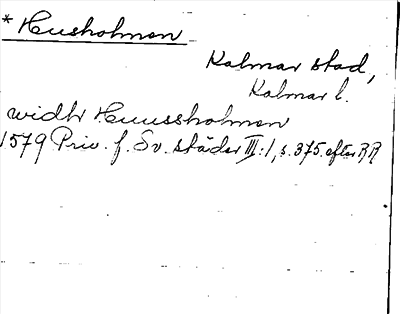 * Husholmen
Kalmar stad,
Kalmar l.
widh Huussholmen
1579 Priv. f. Sv. städer III:1, s. 375 efter RR